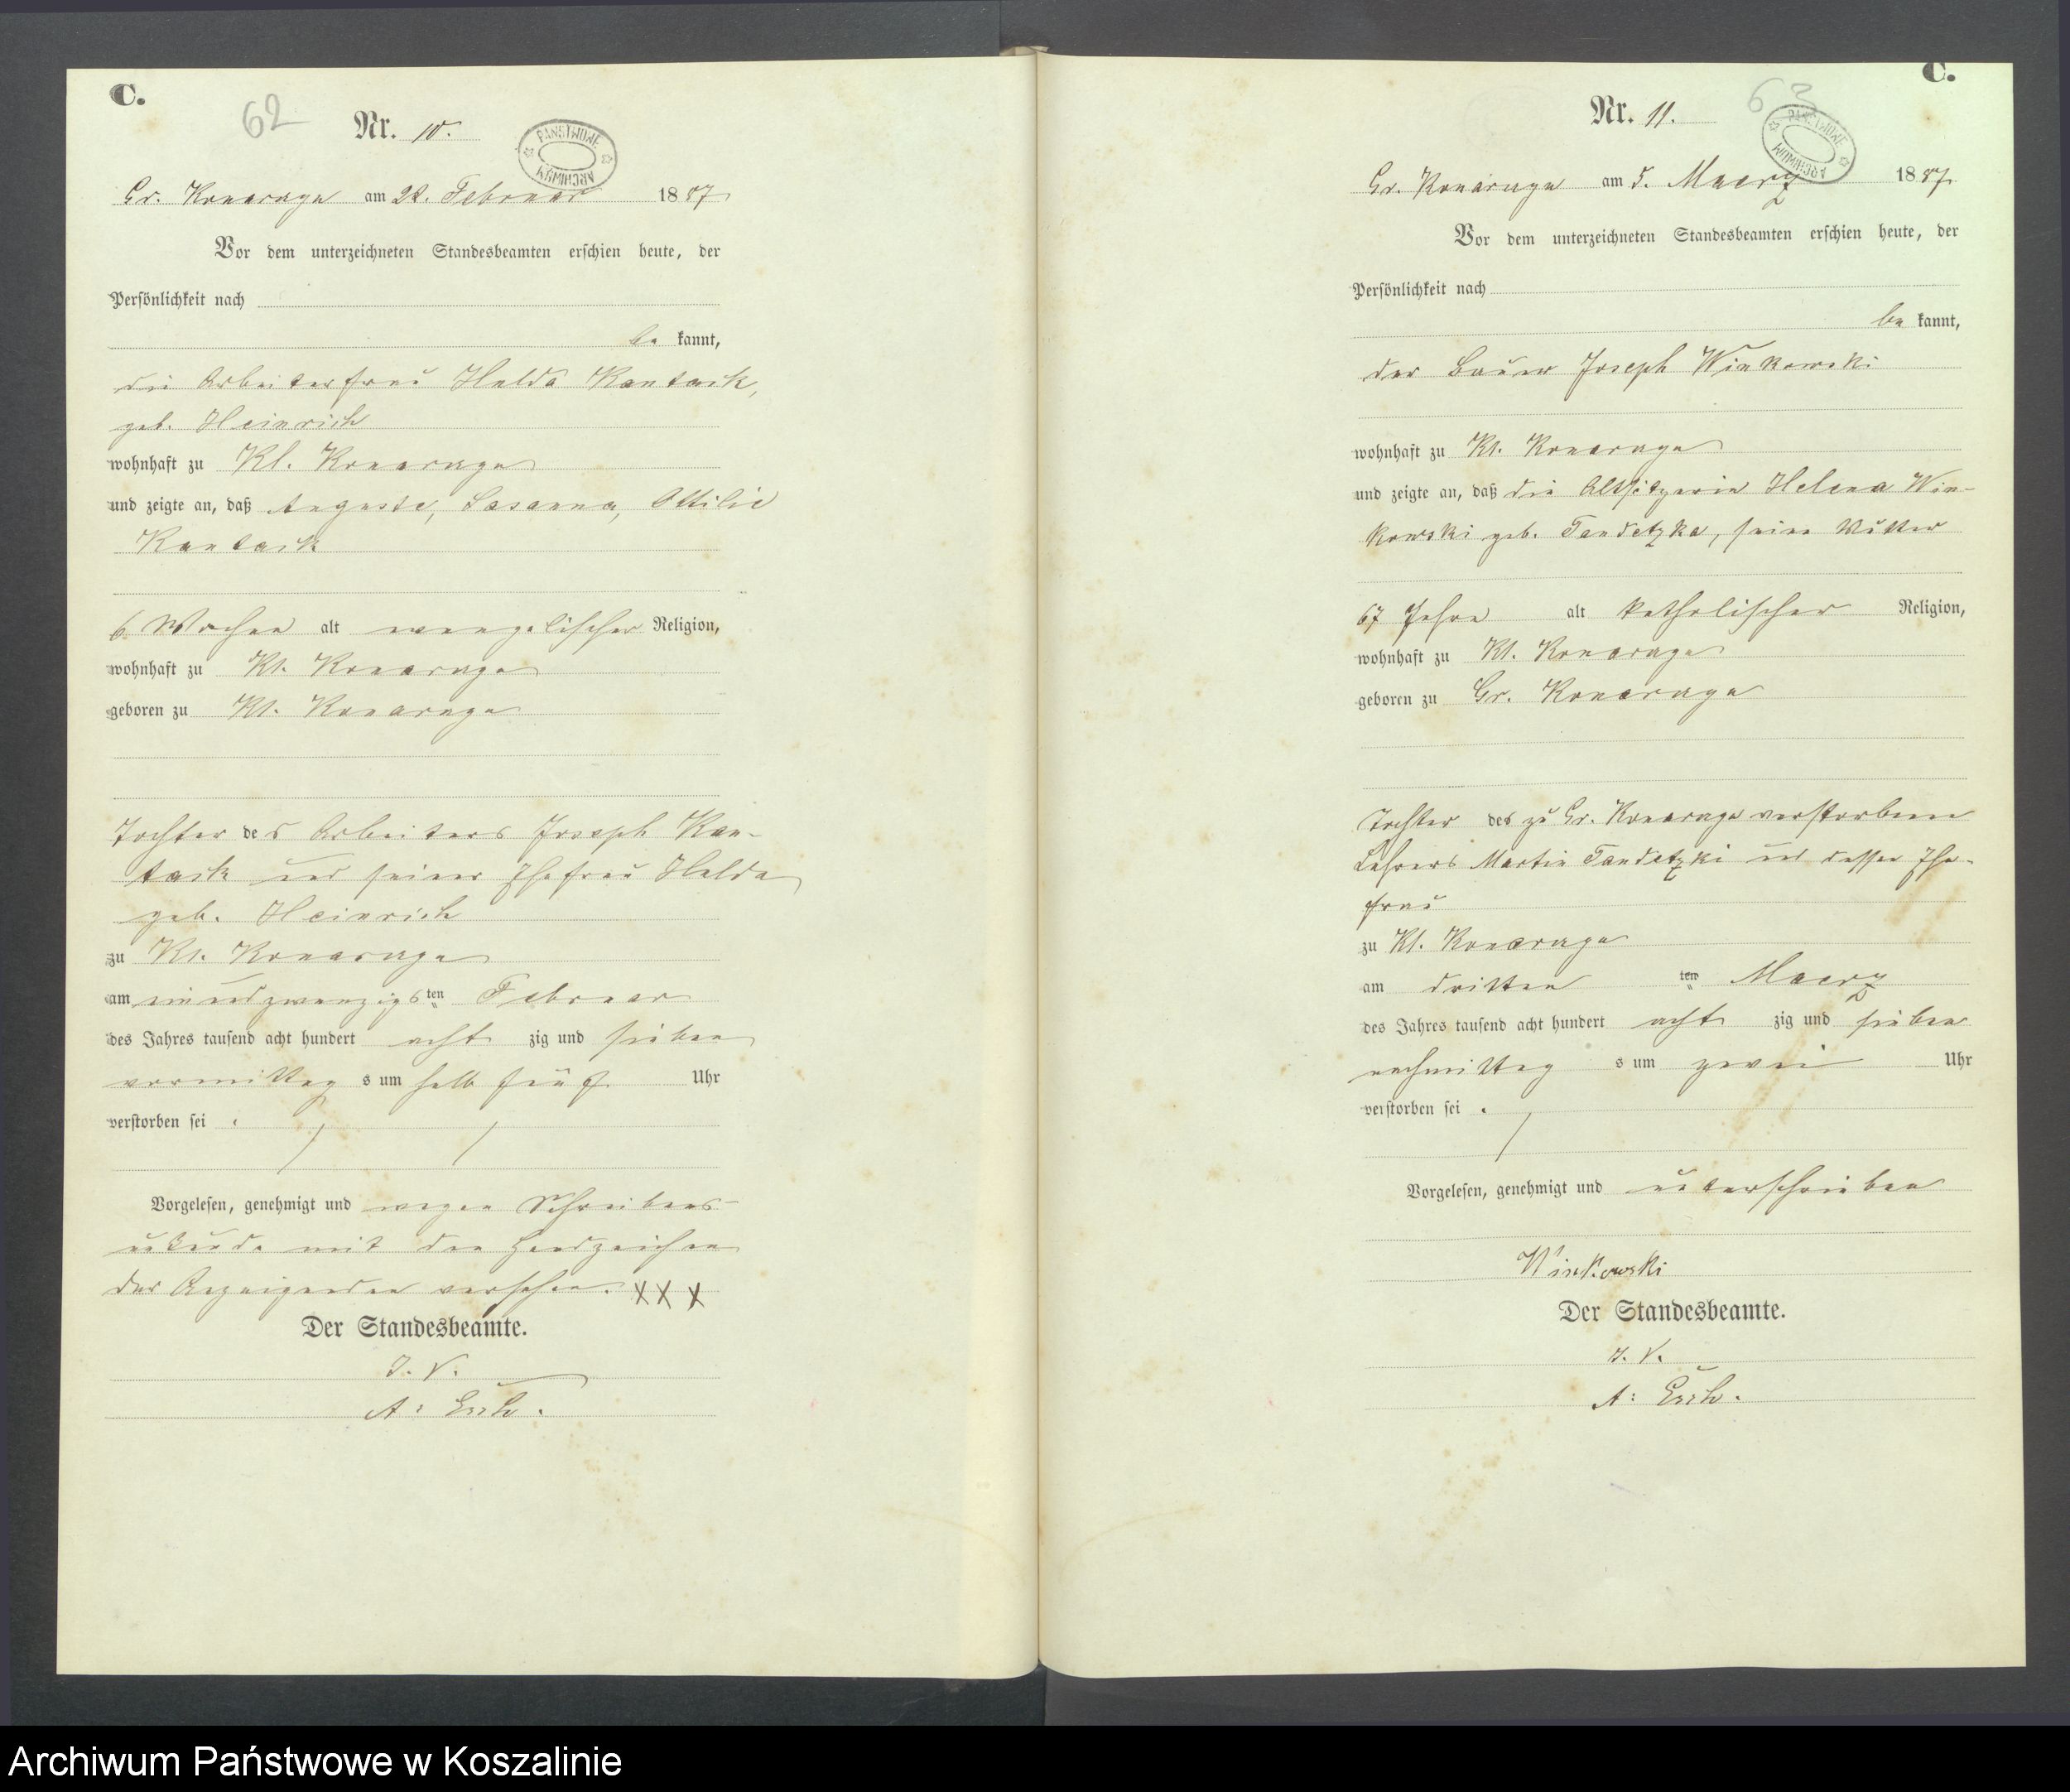 C.
62
Nr. 10.
PAŃSTWOWE ARCHIWUM
Gr. Konarzyn am 22. Februar 1887
Vor dem unterzeichneten Standesbeamten erschien heute, der
Persönlichkeit nach
be kannt,
die Arbeiterfrau Hulda Kantack,
geb. Heinrich
wohnhaft zu Kl. Konarzyn
und zeigte an, daß Auguste, Susanna, Ottilie
Kantack
6 Wochen alt evangelischer Religion,
wohnhaft zu Kl. Konarzyn
geboren zu Kl. Konarzyn
Tochter des Arbeiters Joseph Kan-
tack und seiner Ehefrau Hulda
geb. Heinrich
zu Kl. Konarzyn
am einundzwanzigsten Februar
des Jahres tausend acht hundert acht zig und sieben
vormittag s um halb fünf Uhr
verstorben sei .
Vorgelesen, genehmigt und wegen Schreibens-
unkunde mit den Handzeichen
der Anzeigenden versehen. XXX
Der Standesbeamte.
J. V.
A:
C.
63
Nr. 11.
PAŃSTWOWE ARCHIWUM
Gr. Konarzyn am 5. Maerz 1887
Vor dem unterzeichneten Standesbeamten erschien heute, der
Persönlichkeit nach
be kannt,
der Bauer Joseph Winkowski
wohnhaft zu Kl. Konarzyn
und zeigte an, daß die Altsitzerin Helena Win-
kowski geb. Tandetzka, seine Mutter
67 Jahre alt katholischer Religion,
wohnhaft zu Kl. Konarzyn
geboren zu Gr. Konarzyn
Tochter des zu Gr. Konarzyn verstorbenen
Lehrers Martin Tandetzki und dessen Ehe-
frau
zu Kl. Konarzyn
am dritten ten Maerz
des Jahres tausend acht hundert acht zig und sieben
nachmittag s um zwei Uhr
verstorben sei .
Vorgelesen, genehmigt und unterschrieben
Winkowski
Der Standesbeamte.
J. V.
A:
Archiwum Państwowe w Koszalinie